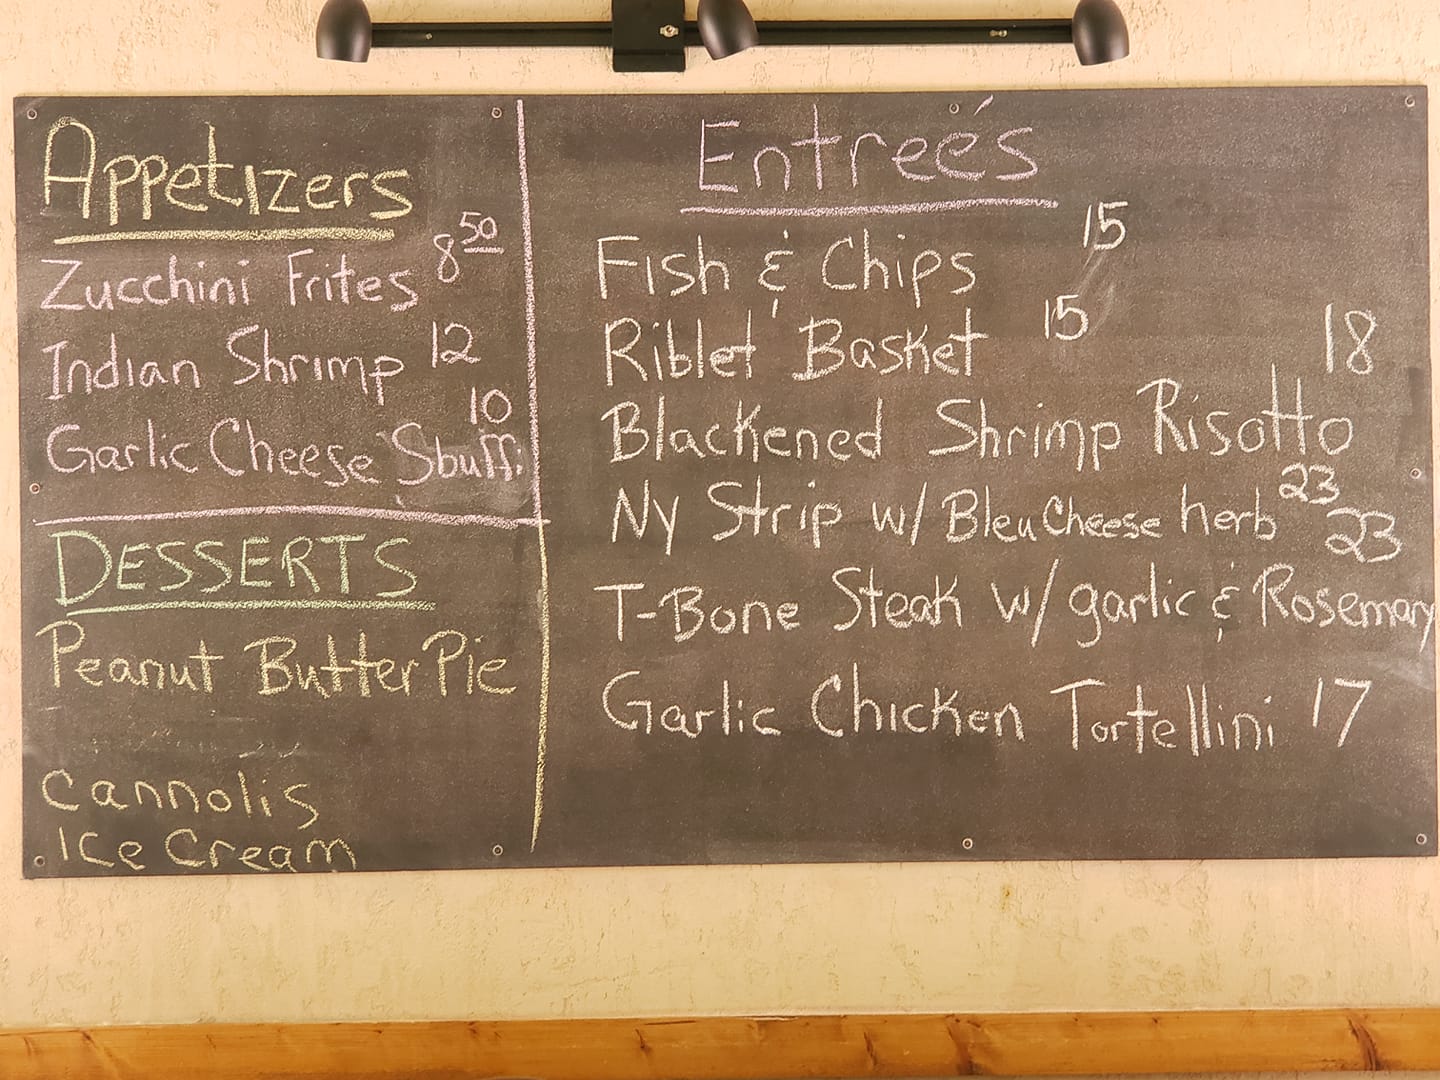 Appetizers
Zucchini Frites 8 50
Indian Shrimp 12
Garlic Cheese 10
DESSERTS
Peanut Butter Pie
Cannolis
Ice Cream
Entreé's
Fish & Chips 15
Riblet Basket 15
Blackened Shrimp Risotto 18
Ny Strip w/ Bleu Cheese herb 23
T-Bone Steak w/ garlic & Rosemary 23
Garlic Chicken Tortellini 17